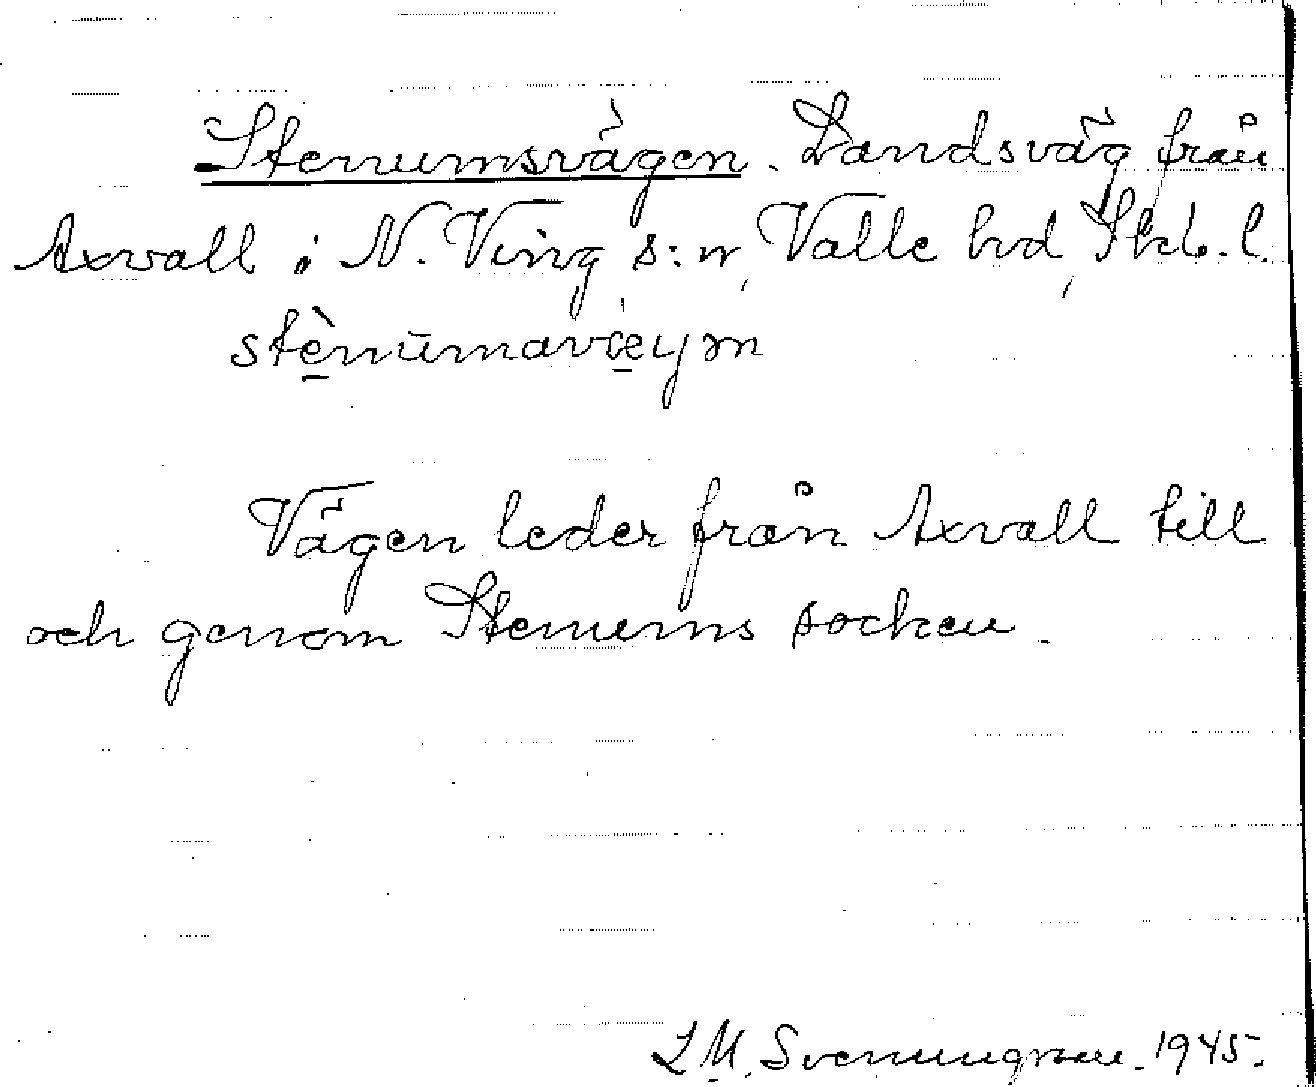 Stenumsvägen. Landsväg från
Axvall i N. Ving s:n, Valle hd, Skb. l.
stènumavæyɜn
Vägen leder från Axvall till
och genom Stenums socken.
L M. Svenungsson. 1945.